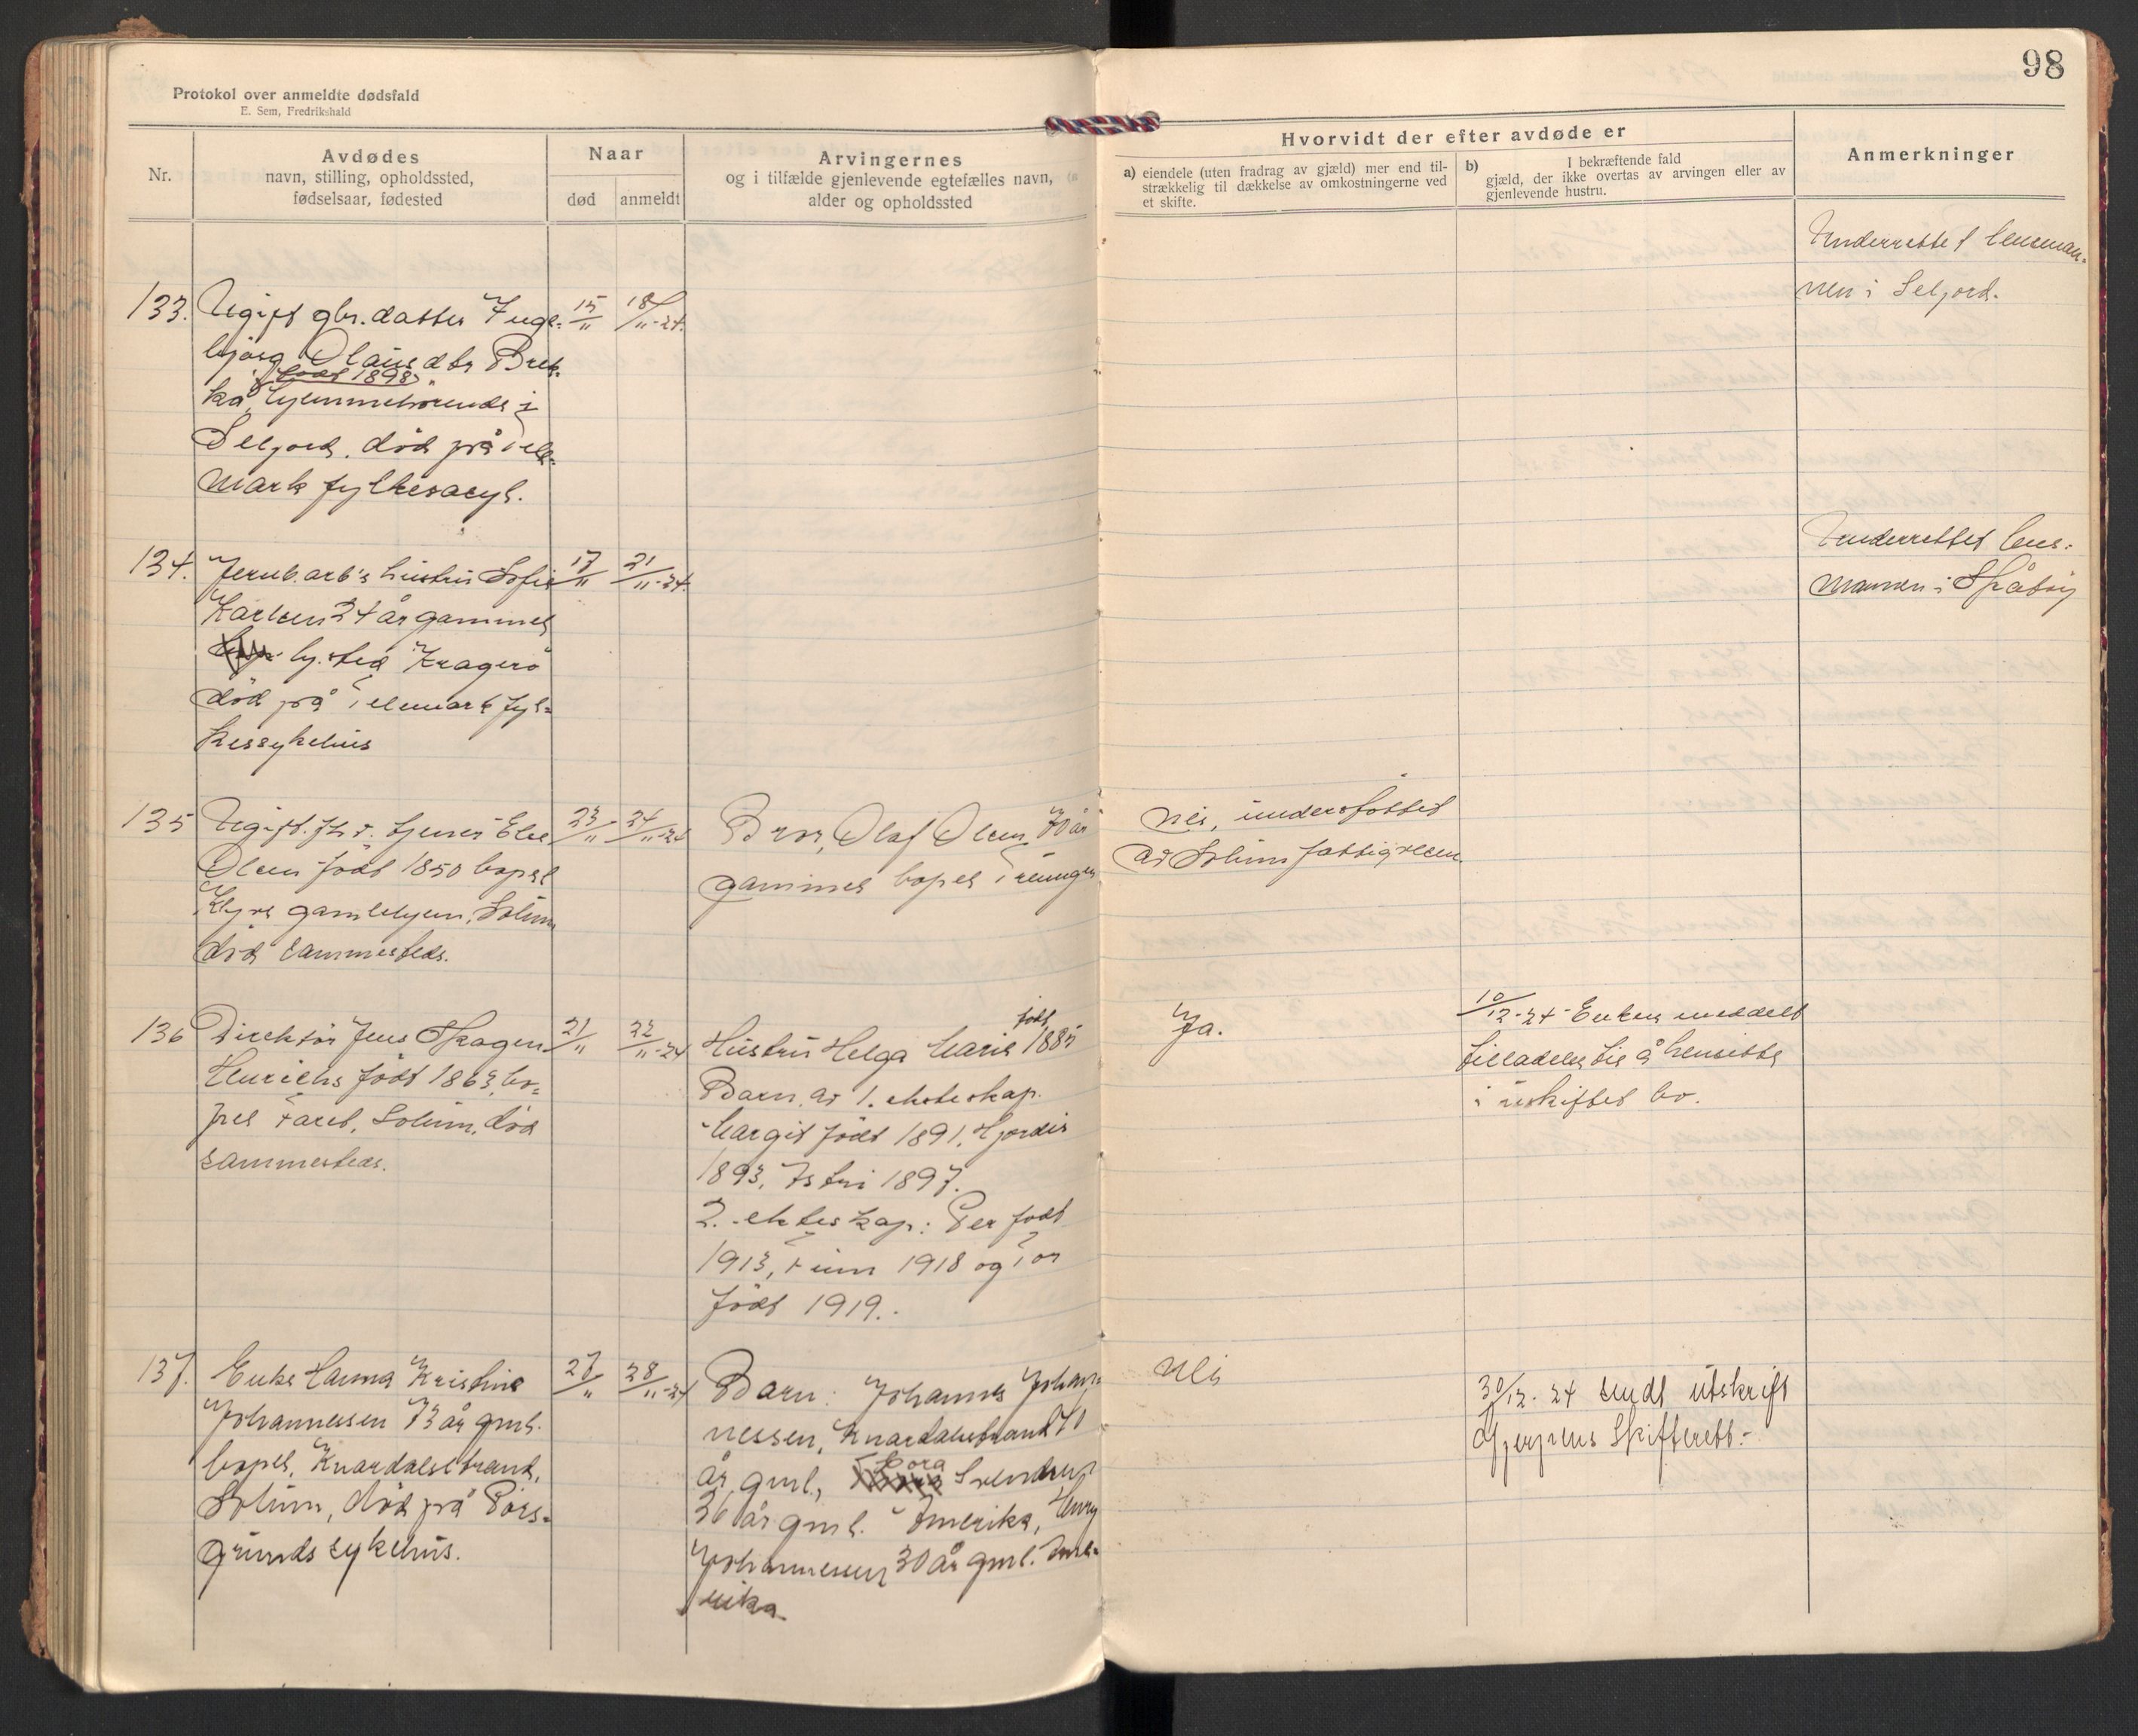 98
Protokol over anmeldte dødsfald
E. Sem, Fredrikshald
Nr.
Avdødes
navn, stilling, opholdssted,
fødselsaar, fødested
Naar
død
anmeldt
Arvingernes
og i tilfælde gjenlevende egtefælles navn,
alder og opholdssted
Hvorvidt der efter avdøde er
a) eiendele (uten fradrag av gjæld) mer end til-
strækkelig til dækkelse av omkostningerne ved
et skifte.
b) I bekræftende fald
gjæld, der ikke overtas av arvingen eller av
gjenlevende hustru.
Anmerkninger
133. Ugift gbr. datter Inge- 15/11 18/11-24.
bjørg Olausdtr
født 1898
hjemmehørende i
Seljord. død på Tele-
mark fylkesasyl.
Underrettet lensman-
nen i Seljord.
134. Jernb.arb's hustru Sofie 17/11 21/11-24.
Karlsen 24 år gammel
hj.sted Kragerø
død på Telemark fyl-
kessykehus
Underrettet lens-
mannen i Skåtøy
135 Ugift. fhv. tjener Else 23/11 24/11-24
Olsen født 1850 bopel
Klyve gamlehjem, Solum
død sammesteds.
Bror, Olaf Olsen 70 år
gammel bopel Treungen
Nei, understøttet
av Solum fattigvesen
136 Direktør Jens Skagen- 21/11 22/11-24
Hinrichs født 1863, bo-
pel Faret, Solum, død
sammesteds.
Hustru Helga Marie født 1885
Barn av 1. ekteskap.
Margit født 1891, Hjordis
1893, Astri 1897.
2. ekteskap: Per født
1913, Finn 1918 og Tor
født 1919.
Ja.
10/12-24 Enken meddelt
tilladelse til å hensitte
i uskiftet bo.
137. Enke Hanna Kristine 27/11 28/11-24
Johannessen 73 år gml.
bopel, Knardalsstrand,
Solum, død på Pors-
grunds sykehus.
Barn: Johannes Johan-
nessen, Knardalsstrand 40
år gml., Cora Svendsen
36 år gml. Amerika, Henry
Johannessen 30 år gml. Ame-
rika
Nei
30/12-24 sendt utskrift
Gjerpens Skifterett.-